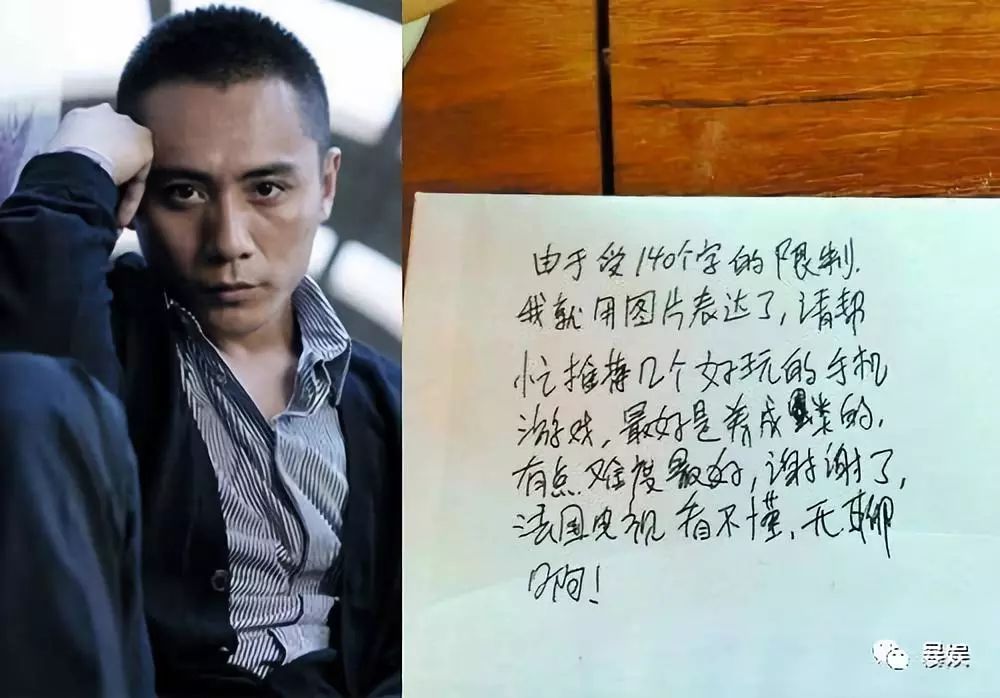 由于受140个字的限制.
我就用图片表达了,请帮
忙推荐几个好玩的手机
游戏,最好是养成类的,
有点难度最好,谢谢了,
法国电视看不懂,无聊
啊!
暴娱